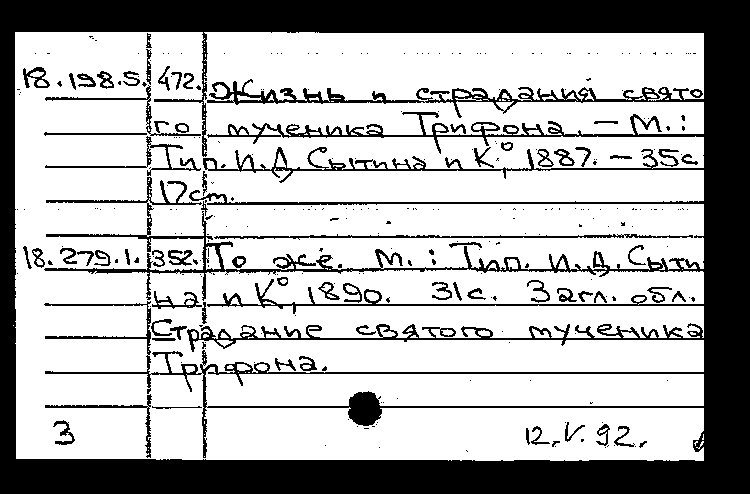 18.198.5. 472. Жизнь и страдания свято
го мученика Трифона. — М.:
Тип. И.Д. Сытина и К°, 1887. — 35с
17см.
18.279.1. 352. То же. М.: Тип. И.Д. Сыти
на и К°, 1890. 31с. Загл. обл.
Страдание святого мученика
Трифона.
3 12.V.92.